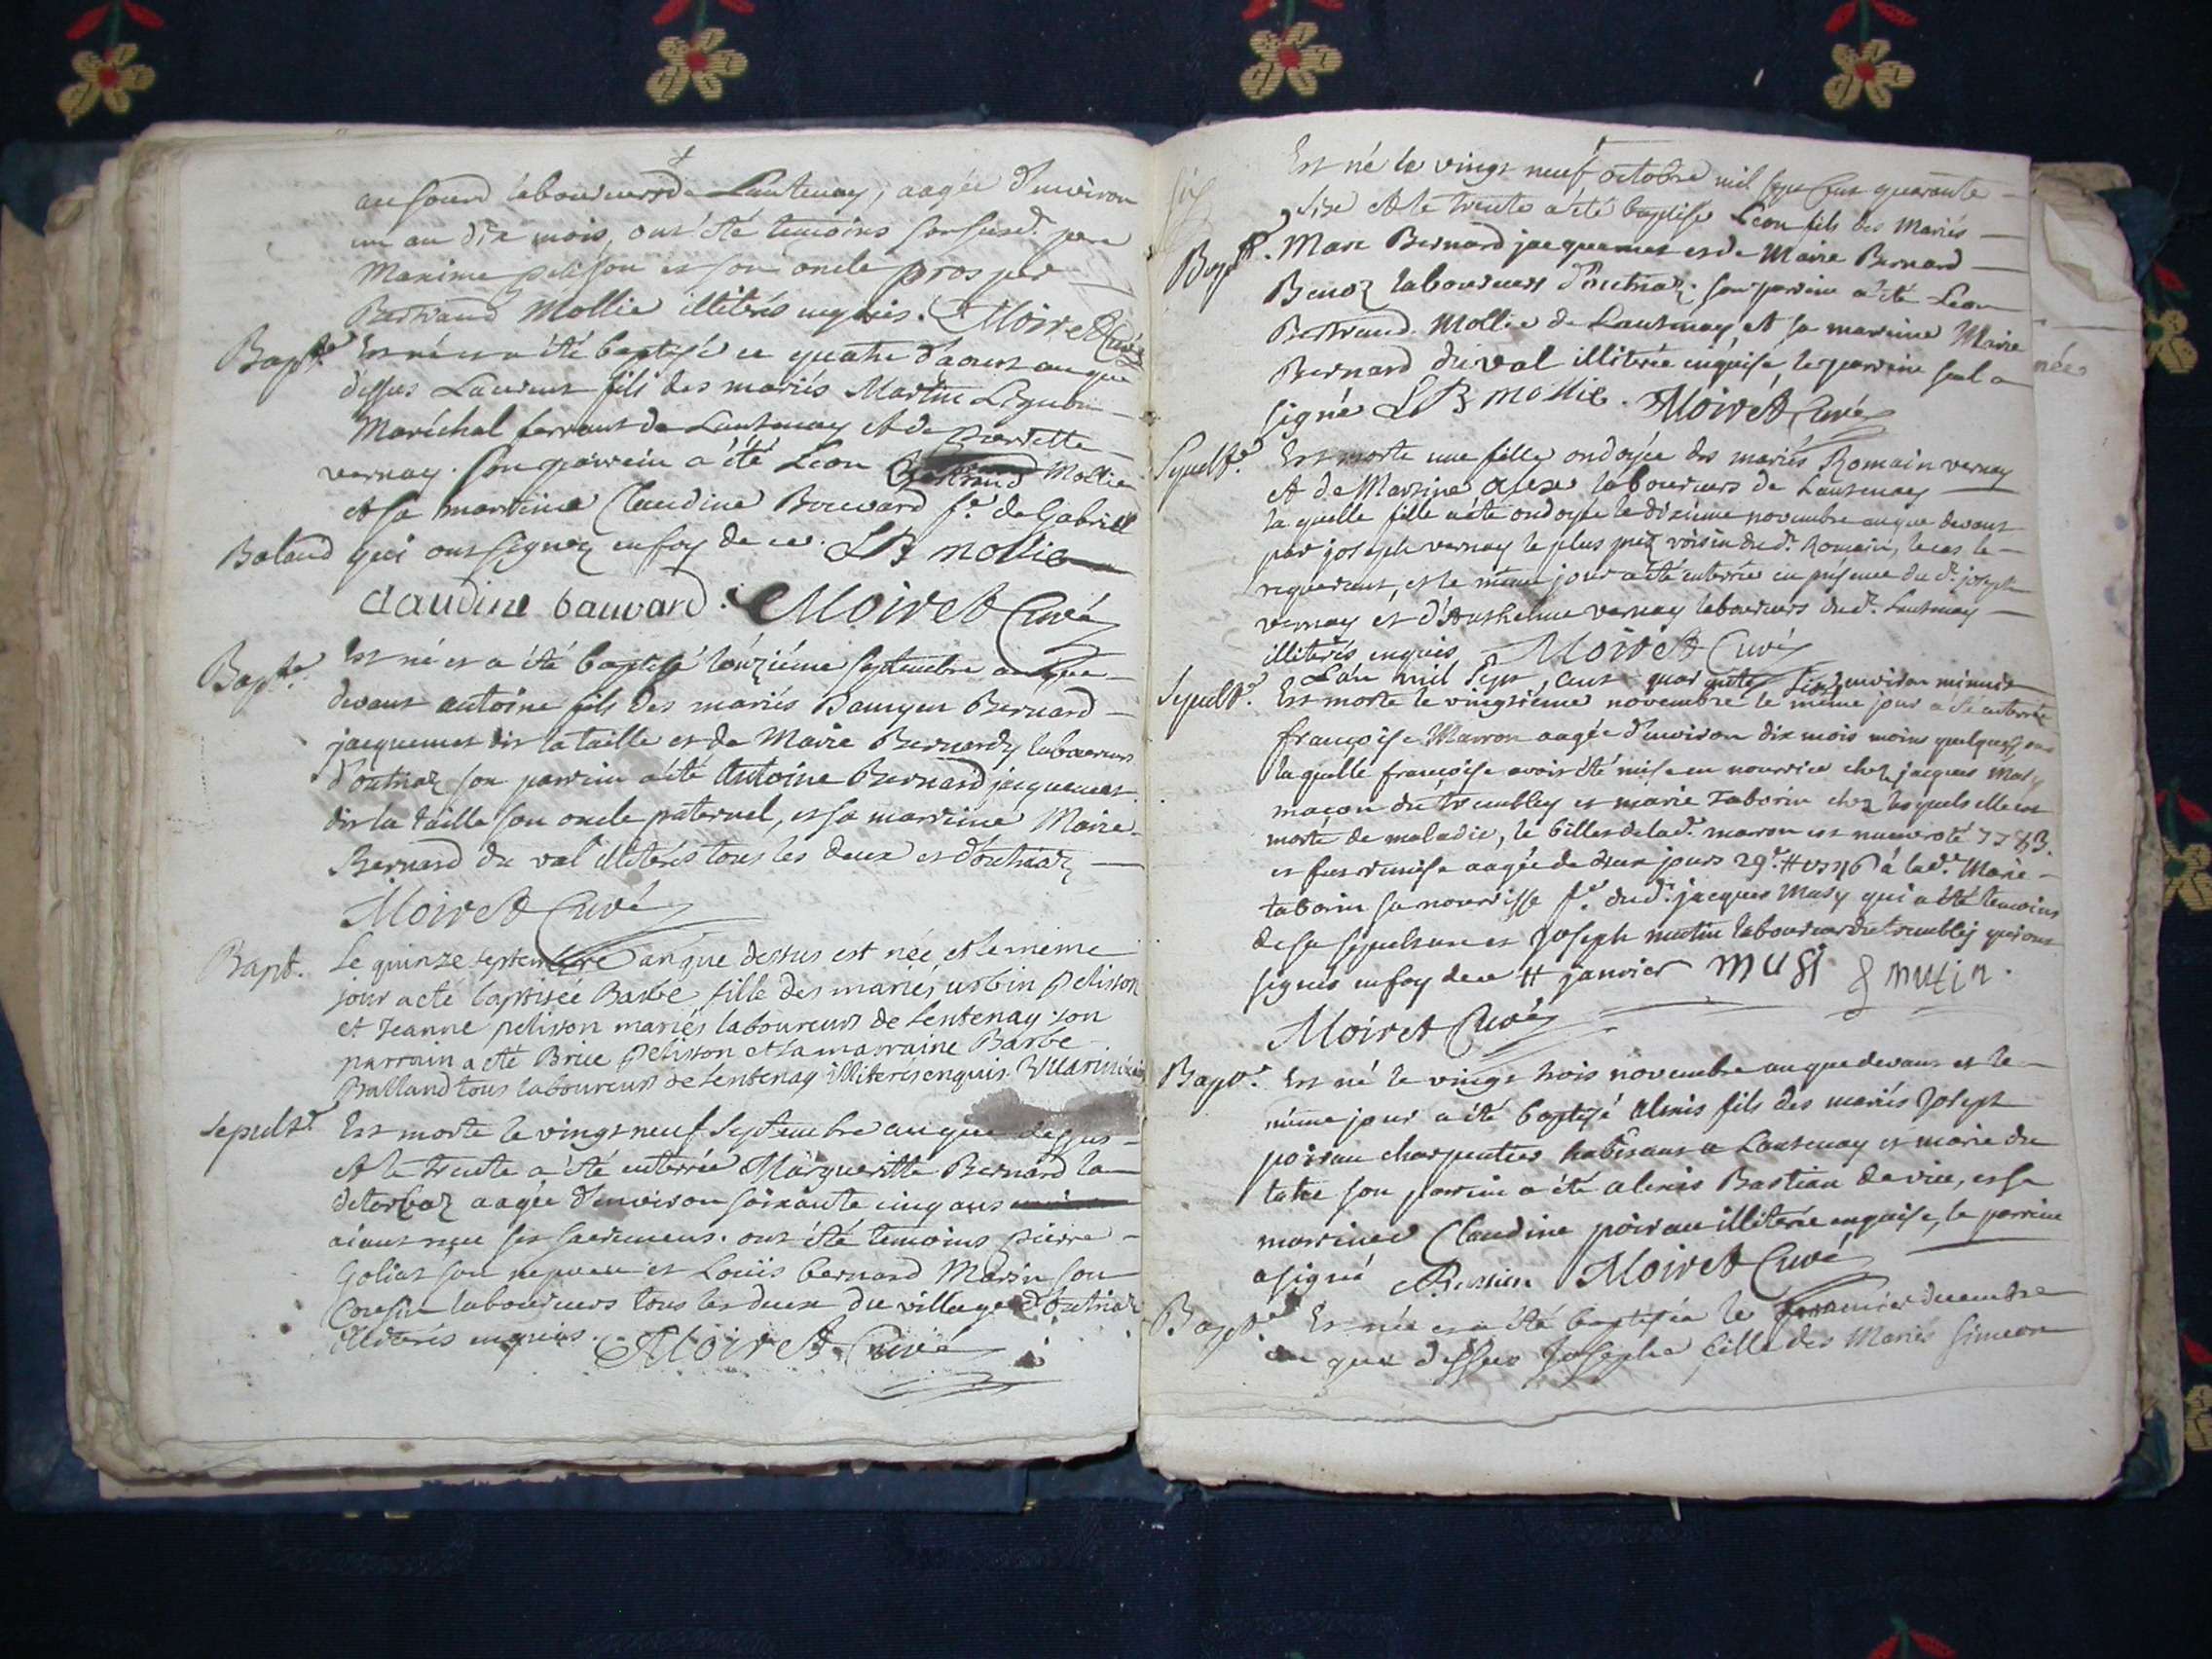 laboureurs de Lantenay, aagée d'environ
un an dix mois, ont été temoins son susd. pere
Maxime pelisson et son oncle prosper
Bertrand Mollie illiterés enquis. Moiret Curé
Bapt.e Est né et a été baptisé ce quatre d'aoust an que
dessus Laurent fils des mariés Martin
Maréchal ferrant de Lantenay et de pierrette
vernay. Son parrein a été Leon Bertrand Mollie
et sa marreine Claudine Bouvard f.e de Gabriel
Baland qui ont signez en foy de ce. LB mollie
claudine bauvard. Moiret Curé
Bapt.e Est né et a été baptisé l'onziéme septembre an que
devant antoine fils des mariés Bernard
jacquemet dit la taille et de Marie Bernard laboureurs
d'outriaz son parrein a été Antoine Bernard jacquemet
dit la taille son oncle paternel, et sa marreine Marie
Bernard du val illiterés tous les deux et d'outriaz
Moiret Curé
Bapt. Le quinze septembre an que dessus est née, et le même
jour a eté baptisée Barbe fille des mariés urbin Pelisson
et Jeanne pelisson mariés laboureurs de Lentenay son
parrain a eté Brice Pelisson et la marraine Barbe
Balland tous laboureurs de Lentenay illiterés enquis.
Sepult.e Est morte le vingt neuf Septembre an que dessus
et le trente a été enterrée Margueritte Bernard la
aagée d'environ soixante cinq ans
aiant reçu ses sacremens. ont été temoins pierre
Goliat son nepveu et Louis bernard Marin son
Cousin laboureurs tous les deux du village d'outriaz
illiterés enquis. Moiret Curé
Est né le vingt neuf octobre mil sept cent quarante
six et le trente a été baptisé Leon fils des Mariés
Bapt.e Marc Bernard jacquemet et de Marie Bernard
Benoz laboureurs d'outriaz. son parrein a été Leon
Bertrand Mollie de Lantenay et sa marreine Marie
Bernard du val illiterée enquise, le parrein seul a
signé LB mollie. Moiret Curé
Sepult.e Est morte une fille ondoyée des mariés Romain vernay
et de Marine laboureurs de Lantenay
la quelle fille a été ondoyée le dixiéme novembre an que devant
par joseph vernay le plus voisin du d. Romain, le cas le
requerant, et le même jour a été enterrée en présence du d. joseph
vernay et d'Anthelme vernay laboureurs dud. Lantenay
illiterés enquis Moiret Curé
L'an mil Sept cent quarante six environ minuit
Sepult.e Est morte le vingtiéme novembre le même jour a été enterrée
françoise Marron aagée d'environ dix mois moins quelques jours
la quelle françoise avoit été mise en nourrice chez jacques Musy
maçon du trembley et marie Taborin chez lesquels elle est
morte de maladie, le billet de lad. maron est numeroté 7783
et fut remise aagée de deux jours 29.e # 1746 à lad. Marie
taborin sa nourrisse f.e dud. jacques Musy qui a été temoins
de sa sepulture et Joseph mutin laboureur du tremblej qui ont
signés en foy de ce # janvier musi J mutin.
Moiret Curé
Bapt.e Est né le vingt trois novembre an que devant et le
même jour a été baptisé alexis fils des mariés Joseph
poirau charpentier habitant a Lantenay et marie du
son parrein a été alexis Bastian de vice, et sa
marreine Claudine poirau illiterée enquise, le parrein
a signé Moiret Curé
Bapt.e Est née et a été baptisée le premier decembre
an que dessus Josephe fille des Mariés Simeon